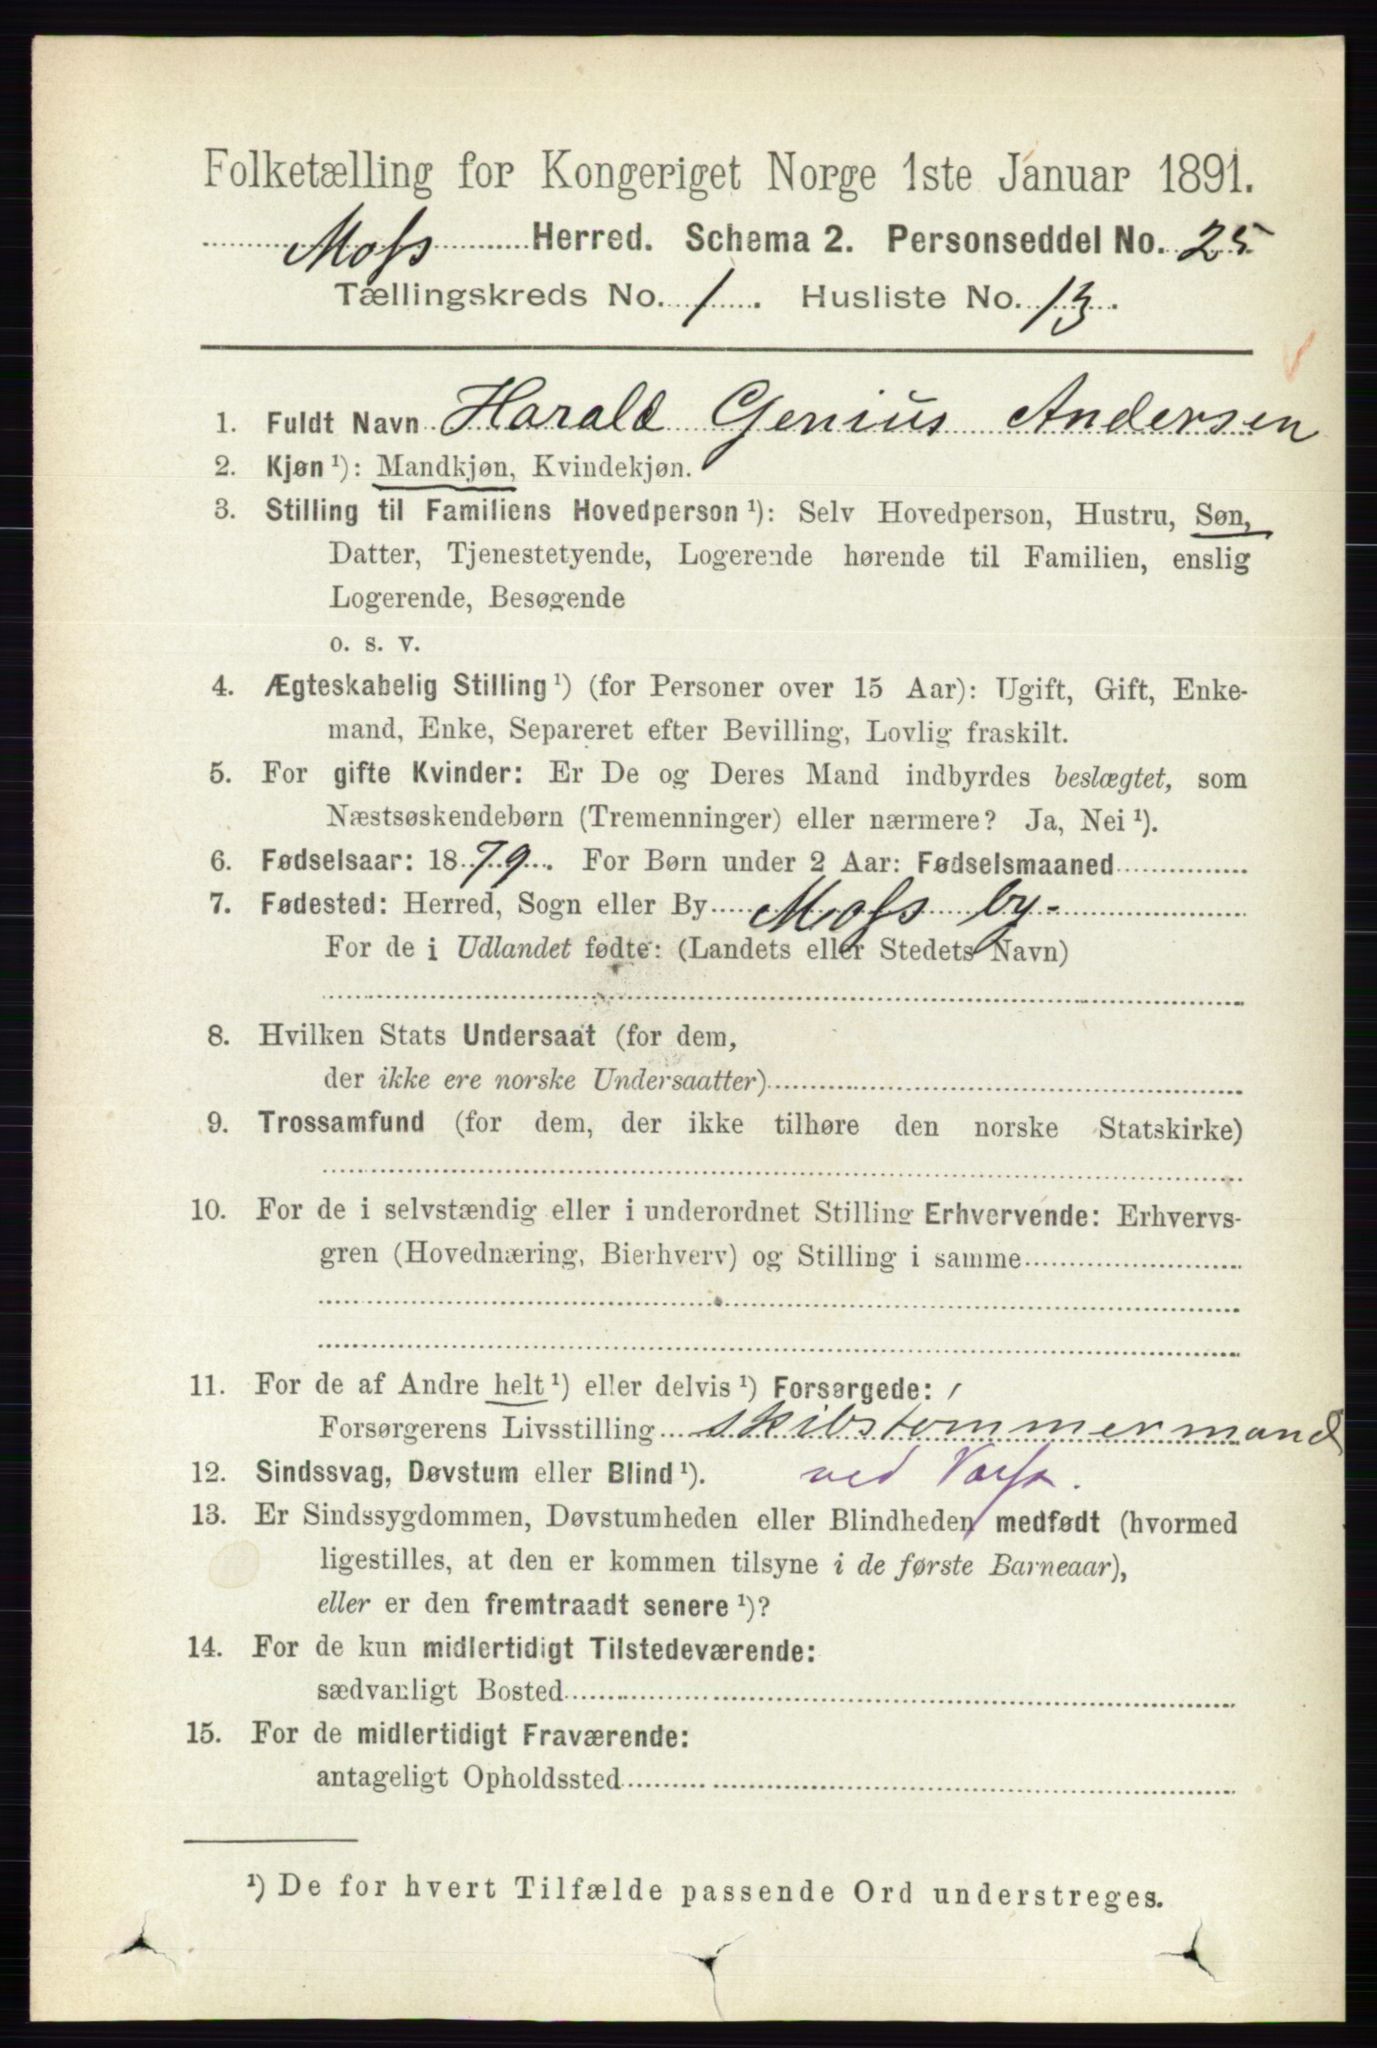 Folketælling for Kongeriget Norge 1ste Januar 1891.
Moss Herred. Schema 2. Personseddel No. 25
Tællingskreds No. 1. Husliste No. 13.
1. Fuldt Navn Harald Genius Andersen
2. Kjøn ¹): Mandkjøn, Kvindekjøn.
3. Stilling til Familiens Hovedperson ¹): Selv Hovedperson, Hustru, Søn,
Datter, Tjenestetyende, Logerende hørende til Familien, enslig
Logerende, Besøgende
o. s. v.
4. Ægteskabelig Stilling ¹) (for Personer over 15 Aar): Ugift, Gift, Enke-
mand, Enke, Separeret efter Bevilling, Lovlig fraskilt.
5. For gifte Kvinder: Er De og Deres Mand indbyrdes beslægtet, som
Næstsøskendebørn (Tremenninger) eller nærmere? Ja, Nei ¹).
6. Fødselsaar: 1879. For Børn under 2 Aar: Fødselsmaaned
7. Fødested: Herred, Sogn eller By Moss by-
For de i Udlandet fødte: (Landets eller Stedets Navn)
8. Hvilken Stats Undersaat (for dem,
der ikke ere norske Undersaatter)
9. Trossamfund (for dem, der ikke tilhøre den norske Statskirke)
10. For de i selvstændig eller i underordnet Stilling Erhvervende: Erhvervs-
gren (Hovednæring, Bierhverv) og Stilling i samme
11. For de af Andre helt ¹) eller delvis ¹) Forsørgede:
Forsørgerens Livsstilling skibstømmermand
12. Sindssvag, Døvstum eller Blind ¹). ved
13. Er Sindssygdommen, Døvstumheden eller Blindheden medfødt (hvormed
ligestilles, at den er kommen tilsyne i de første Barneaar),
eller er den fremtraadt senere ¹)?
14. For de kun midlertidigt Tilstedeværende:
sædvanligt Bosted
15. For de midlertidigt Fraværende:
antageligt Opholdssted
¹) De for hvert Tilfælde passende Ord understreges.